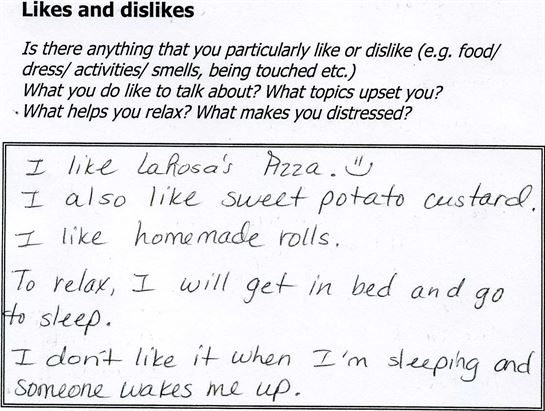 Likes and dislikes
Is there anything that you particularly like or dislike (e.g. food/
dress/ activities/ smells, being touched etc.)
What you do like to talk about? What topics upset you?
What helps you relax? What makes you distressed?
I like LaRosa's Pizza.
I also like sweet potato custard.
I like homemade rolls.
To relax, I will get in bed and go
to sleep.
I don't like it when I'm sleeping and
someone wakes me up.